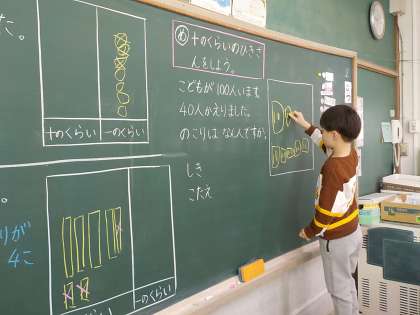 た。
十のくらい 一のくらい
め 十のくらいのひきざ
んをしよう。
こどもが100人います。
40人かえりました。
のこりは なん人ですか。
しき
こたえ
りが
4に
一のくらい